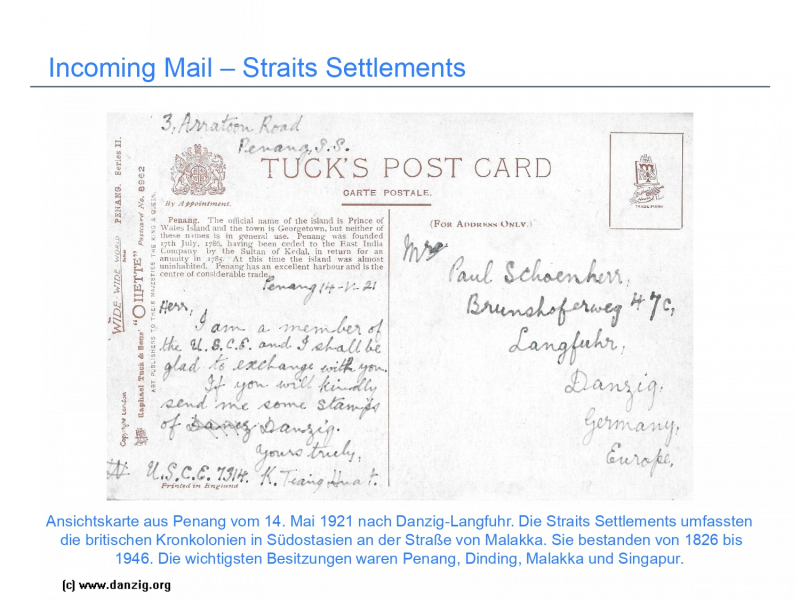 Incoming Mail – Straits Settlements
3, Arratoon Road
Penang, S.S.
TUCK'S POST CARD
CARTE POSTALE.
By Appointment.
TRADE MARK
(FOR ADDRESS ONLY.)
WIDE WIDE WORLD PENANG. Series II.
Raphael Tuck & Sons' "OILETTE" Postcard No. 8962
ART PUBLISHERS TO THEIR MAJESTIES THE KING & QUEEN.
Penang. The official name of the island is Prince of
Wales Island and the town is Georgetown, but neither of
these names is in general use. Penang was founded
17th July, 1786, having been ceded to the East India
Company by the Sultan of Kedal, in return for an
annuity in 1785. At this time the island was almost
uninhabited. Penang has an excellent harbour and is the
centre of considerable trade.
Penang 14-V-21
Herr,
I am a member of
the U.S.C.E. and I shall be
glad to exchange with you.
If you will kindly
send me some stamps
of Danzig.
Yours truly,
U.S.C.E. 7314. K. Tiang Huat.
Printed in England
Paul Schoenherr,
Brunshoferweg 47c,
Langfuhr,
Danzig.
Germany,
Europe,
Ansichtskarte aus Penang vom 14. Mai 1921 nach Danzig-Langfuhr. Die Straits Settlements umfassten
die britischen Kronkolonien in Südostasien an der Straße von Malakka. Sie bestanden von 1826 bis
1946. Die wichtigsten Besitzungen waren Penang, Dinding, Malakka und Singapur.
(c) www.danzig.org